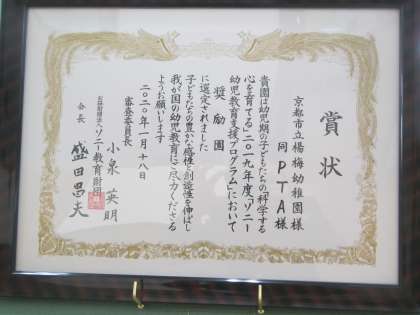 賞状
京都市立楊梅幼稚園様
同PTA様
貴園は幼児期の子どもたちの「科学する
心を育てる」二〇一九年度「ソニー
幼児教育支援プログラム」において
奨励園
に選定されました
子どもたちの豊かな感性と創造性を伸ばし
我が国の幼児教育にご尽力くださる
ようお願いします
二〇二〇年一月十八日
審査委員長
小泉英明
公益財団法人ソニー教育財団
会長
盛田昌夫